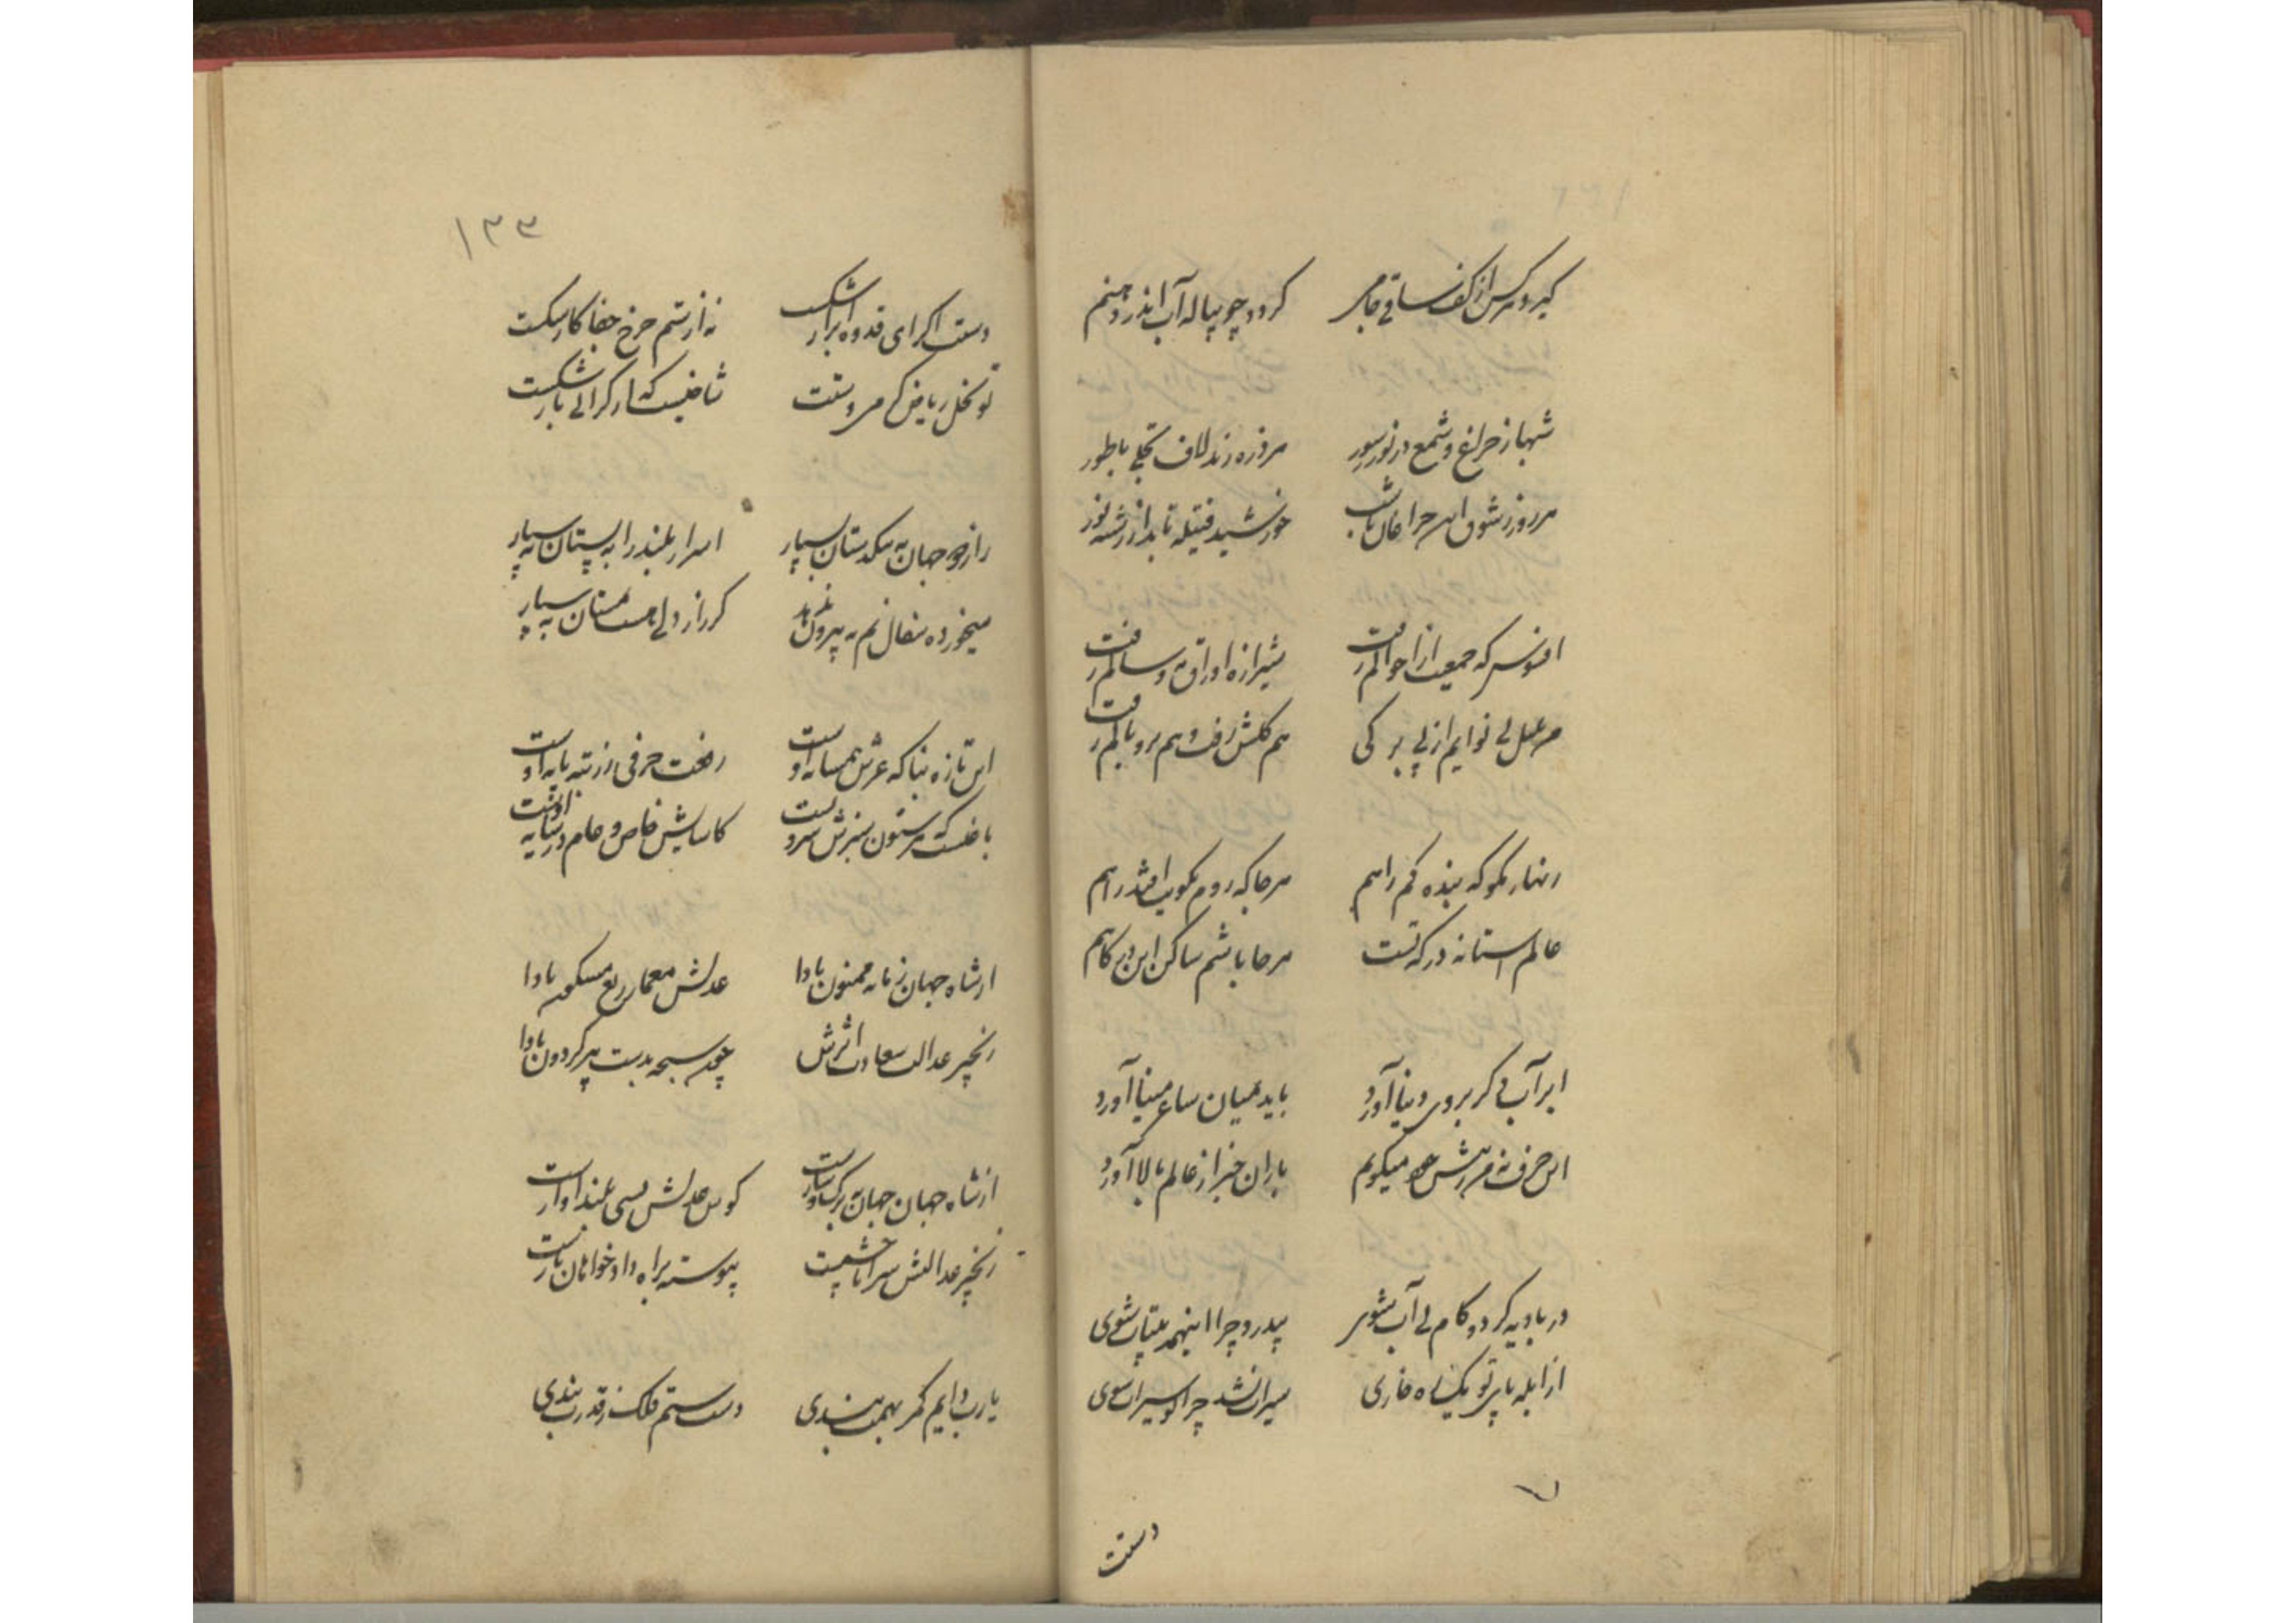 گیرد هر کس از کف ساقی جامی گردد چو پیاله آب اندر دهنم
شبها ز چراغ و شمع در نور سرور هر ذره زند لاف تجلی با طور
هر روز ز شوق این چراغان تا شب خورشید فتیله تابد از رشته نور
افسوس که جمعیت از احوالم رفت شیرازه اوراق مه و سالم رفت
بلبل بی نوایم از بی برگی هم گلشن رفت و هم پر و بالم رفت
زنهار مگو که بنده گمراهم هر جا که روم بکویت افتد راهم
عالم آستانه درگه تست هر جا باشم ساکن این درگاهم
ابر آب دگر بروی دنیا آورد باید بمیان ساغر و مینا آورد
این حرف نه من ز پیش خود میگویم باران خبر از عالم بالا آورد
در بادیه گر دو گام بی آب شوی بیدرد چرا اینهمه بیتاب شوی
از آبله پای تو یک ساه خاری سیراب نشد چرا تو سیراب شوی
۷
دستت
۱۳۳
دستت اگر ای قدوه ابرار شکست نه از ستم چرخ جفاکار شکست
تو نخل ریاض کرمی و دستت شاخیست که از گرانی بار شکست
راز دو جهان به تنگدستان بسپار اسرار بلند را به پستان بسپار
میخورده سفال نم به بیرون ندهد گر راز دلی هست بمستان بسپار
این تازه بنا که عرش همسایه اوست رفعت حرفی ز رتبه پایه اوست
باغیست که هر ستون سبزش سرویست کاسایش خاص و عام در سایه اوست
از شاه جهان زمانه ممنون بادا عدلش معمار ربع مسکون بادا
زنجیر عدالت سعادت اثرش چون سبحه بدست پیر گردون بادا
از شاه جهان جهان به برگ و سازست کوس عدلش بسی بلند آوازست
زنجیر عدالتش سراپا چشمیست پیوسته براه دادخواهان بازست
یا رب دایم کمر بهمت بندی دست ستم فلک ز قدرت بندی